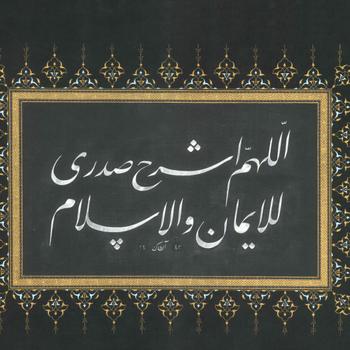 اللّهمّ اشرح صدری
للایمان والإسلام